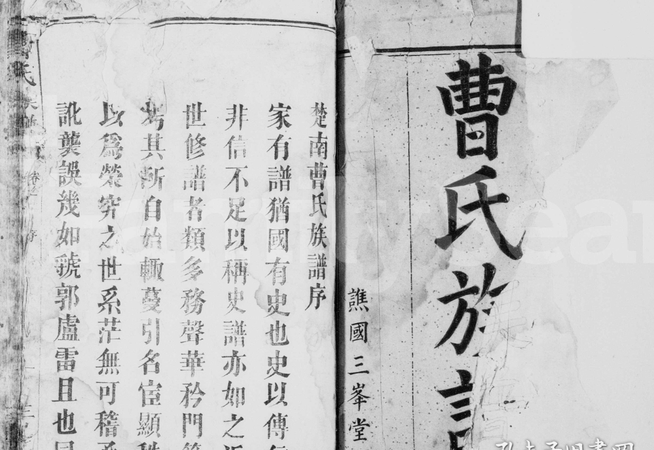 曹氏族
譙國三峯堂
楚南曹氏族譜序
家有譜猶國有史也史以傳
非信不足以稱史譜亦如之
世修譜者類多務聲華矜門
其所自始輙蔓引名宦顯
以爲榮究之世系茫無可稽
訛襲誤幾如虢郭盧雷且也
氏族
FamilySear